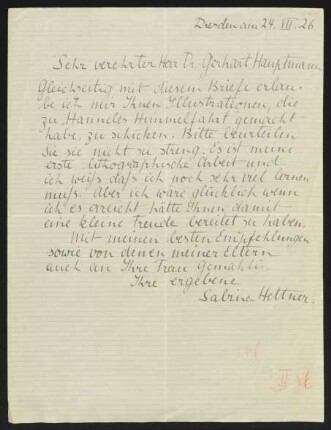 Dresden am 24. VII. 26
Sehr verehrter Herr Dr. Gerhart Hauptmann
Gleichzeitig mit diesem Briefe erlau-
be ich mir Ihnen Illustrationen, die
zu Hanneles Himmelfahrt gemacht
habe, zu schicken. Bitte beurteilen
Sie sie nicht zu streng. Es ist meine
erste lithographische Arbeit und
ich weiß daß ich noch sehr viel lernen
muß. Aber ich wäre glücklich wenn
ich es erreicht hätte Ihnen damit
eine kleine Freude bereitet zu haben.
Mit meinen besten Empfehlungen
sowie von denen meiner Eltern
auch an Ihre Frau Gemahlin
Ihre ergebene
Sabine Hettner.